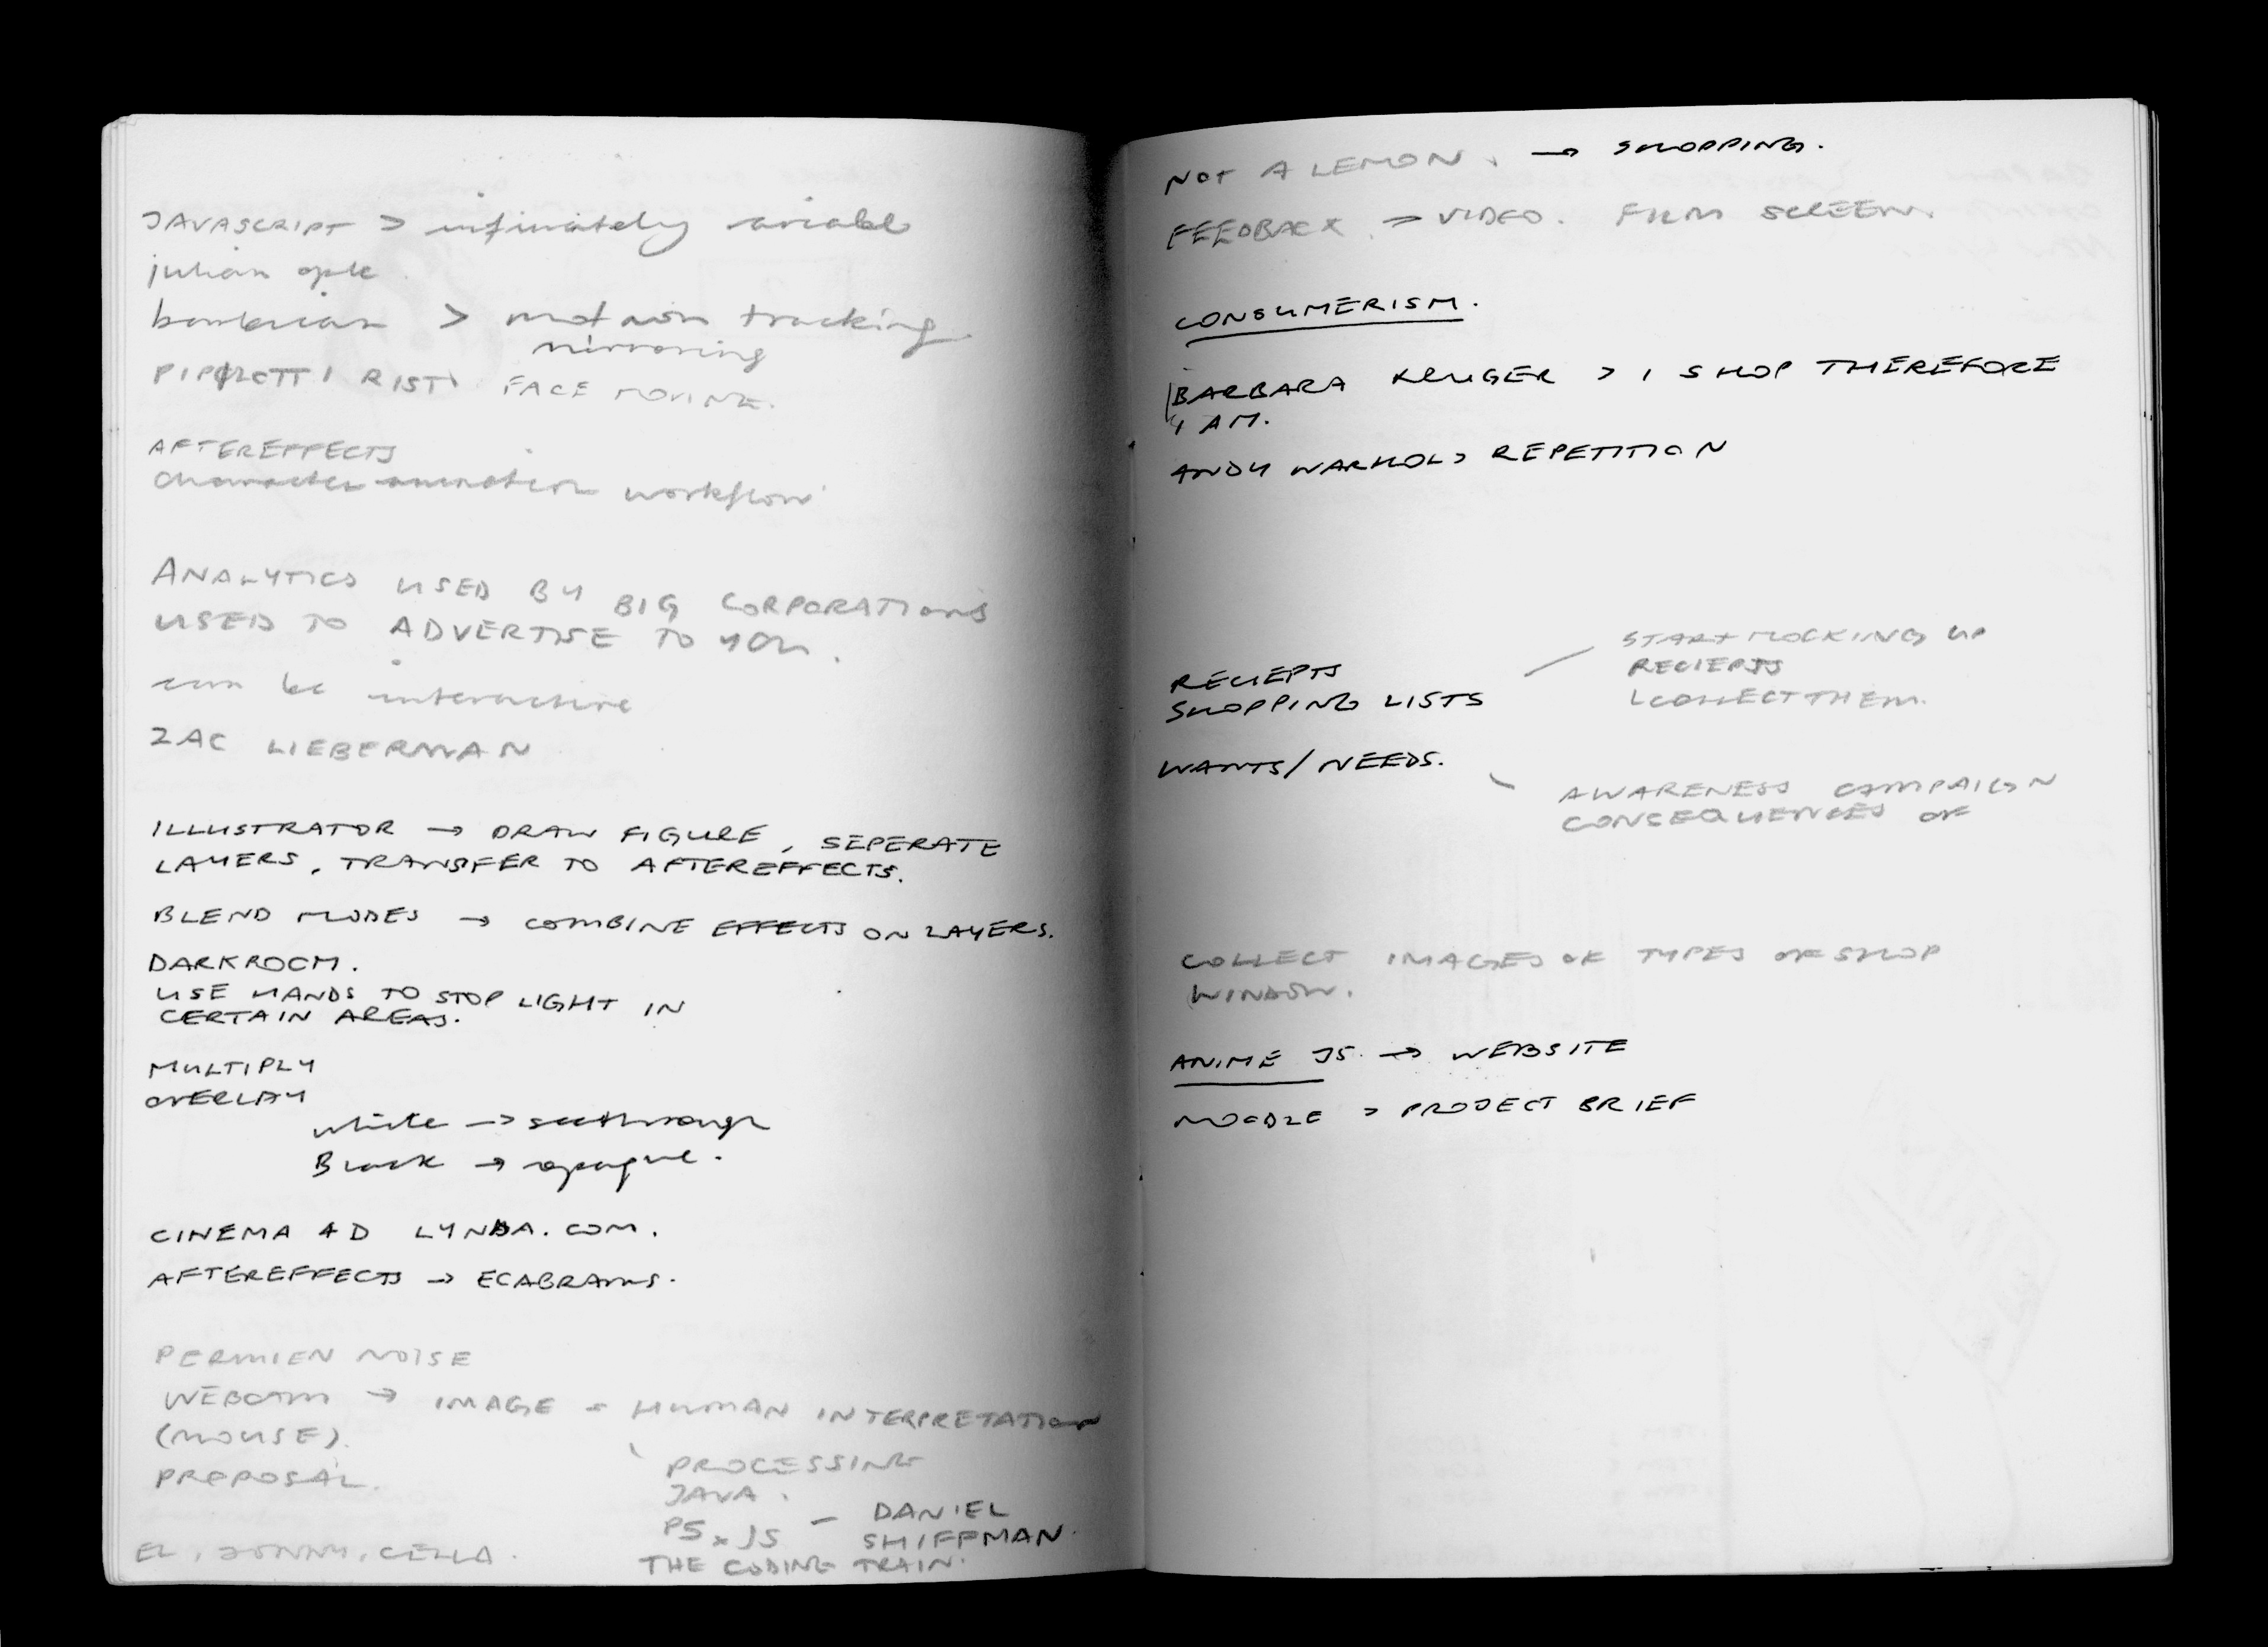 JAVASCRIPT > infinately variable
julian opie
> motion tracking
mirroring
PIPILOTTI RIST FACE MOVING.
AFTEREFFECTS
character animation workflow
ANALYTICS USED BY BIG CORPORATIONS
USED TO ADVERTISE TO YOU.
can be interactive
ZAC LIEBERMAN
ILLUSTRATOR → DRAW FIGURE, SEPERATE
LAYERS, TRANSFER TO AFTEREFFECTS.
BLEND MODES → COMBINE EFFECTS ON LAYERS.
DARKROOM.
USE HANDS TO STOP LIGHT IN
CERTAIN AREAS.
MULTIPLY
OVERLAY
white → seethrough
Black → opaque.
CINEMA 4D LYNDA.COM.
AFTEREFFECTS → ECABRAMS.
PERMIEN NOISE
WEBCAM → IMAGE = HUMAN INTERPRETATION
(MOUSE).
PROPOSAL.
PROCESSING
JAVA.
P5 x JS — DANIEL
SHIFFMAN.
THE CODING TRAIN.
EL, JONNY, CELLA.
NOT A LEMON. → SHOPPING.
FEEDBACK → VIDEO. FILM SCREEN.
CONSUMERISM.
BARBARA KRUGER > I SHOP THEREFORE
I AM.
ANDY WARHOL > REPETITION
START MOCKING UP
RECIEPTS
COLLECT THEM.
RECIEPTS
SHOPPING LISTS
WANTS/NEEDS.
AWARENESS CAMPAIGN
CONSEQUENCES OF
COLLECT IMAGES OF TYPES OF SHOP
WINDOW.
ANIME JS. → WEBSITE
MOODLE > PROJECT BRIEF